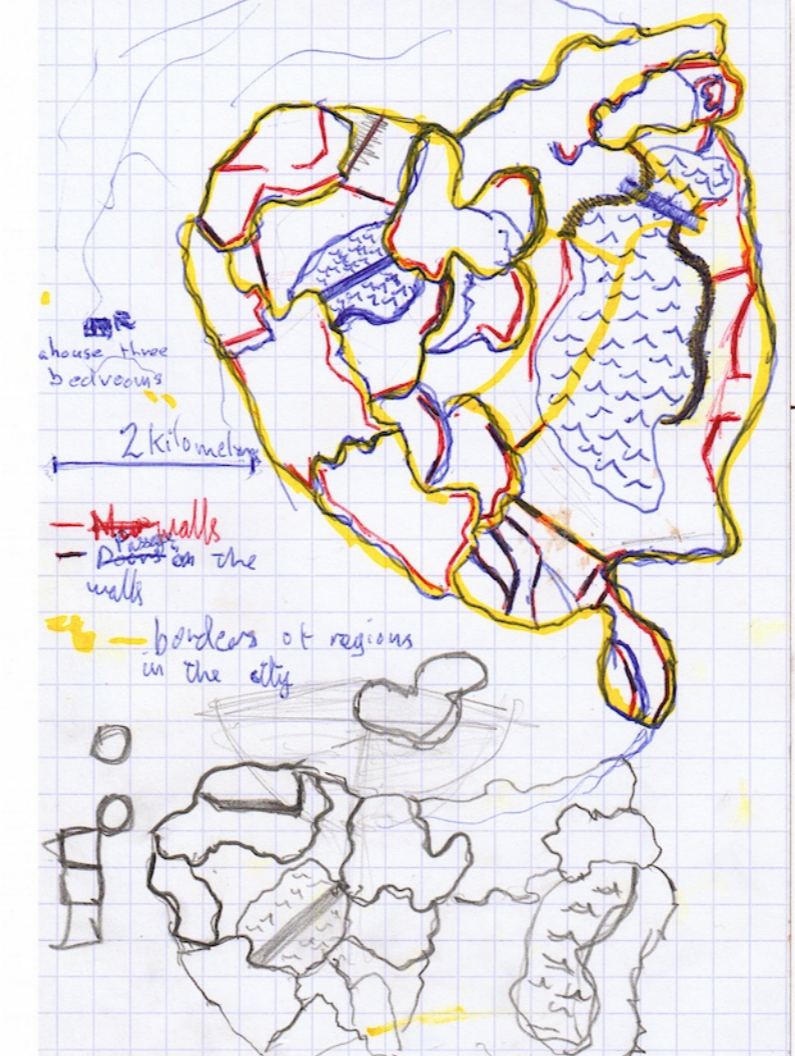 a house three
bedrooms
2 kilometers
walls
Passages
Doors on the
walls
borders of regions
in the city